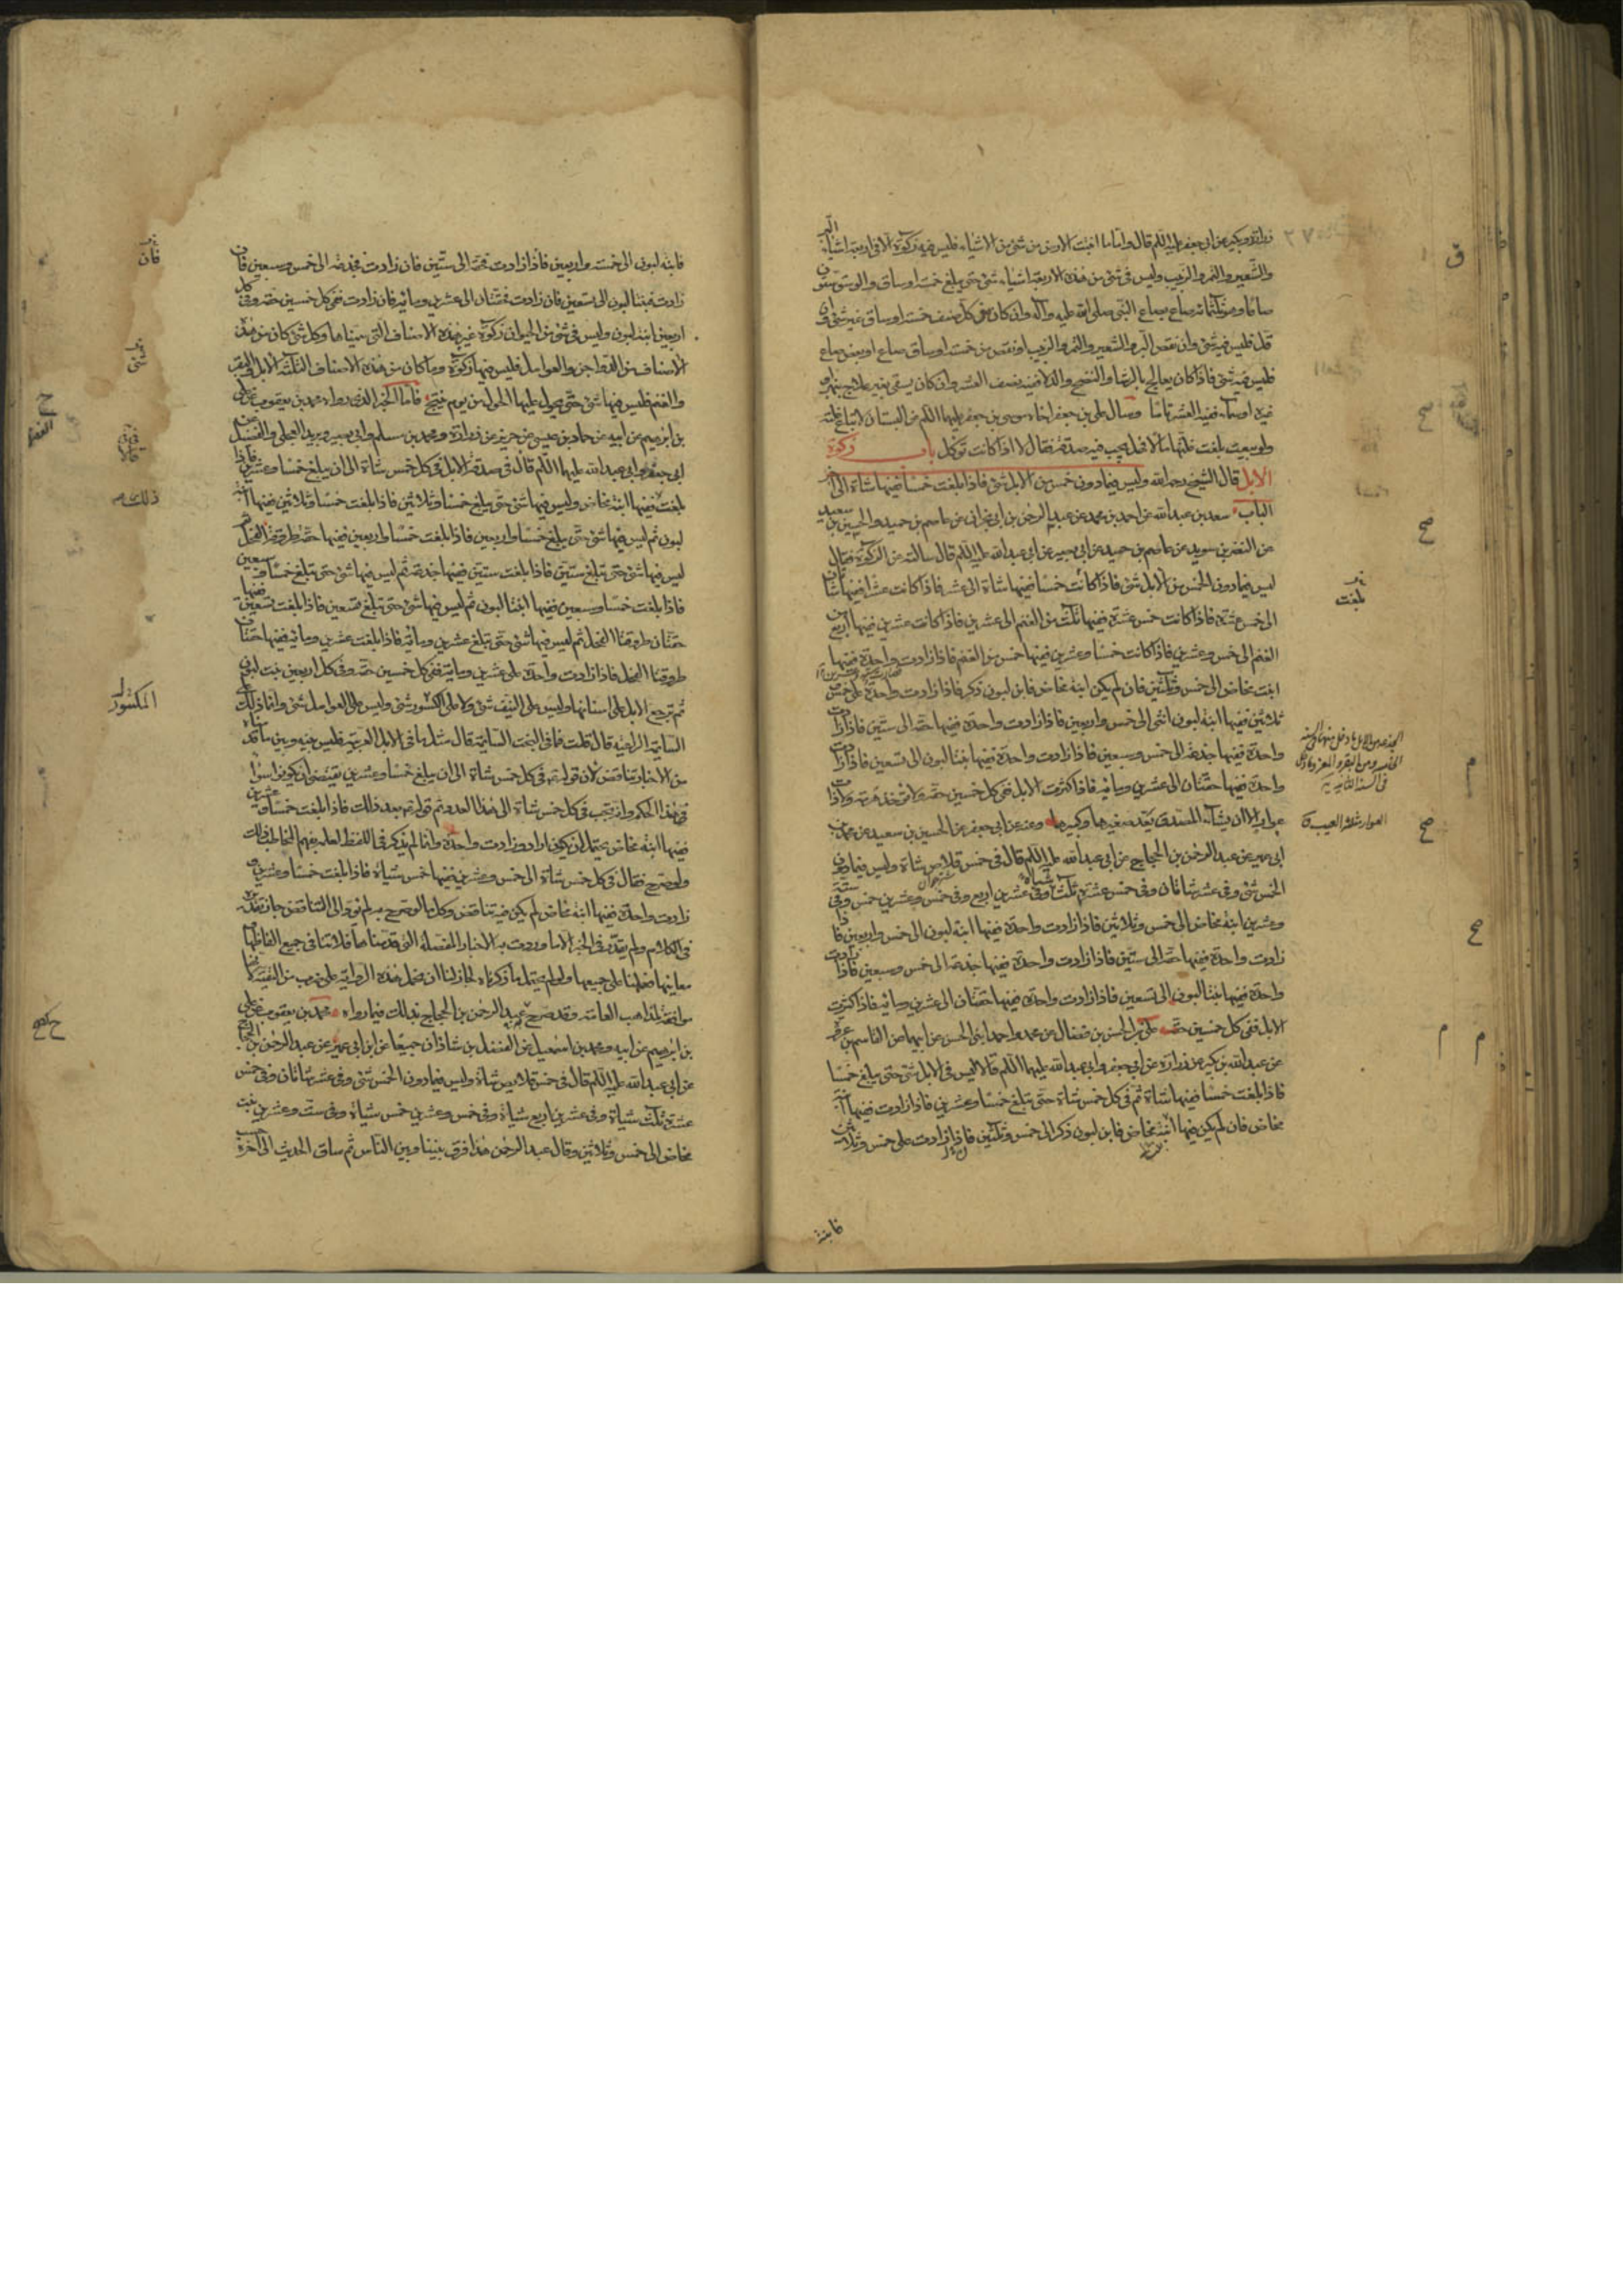 زرارة وبكير عن ابي جعفر عليه السلم قال واما ما انبتت الارض من شئ من الاشياء فليس فيه زكوة الا في اربعة اشياء البر
والشعير والتمر والزبيب وليس في شئ من هذه الاربعة اشياء شئ حتى يبلغ خمسة اوساق والوسق ستون
صاعا وهو ثلثمائة صاع بصاع النبي صلى الله عليه وآله وان كان من كل صنف خمسة اوساق غير شئ وان
قل فليس فيه شئ وان نقص البر والشعير والتمر والزبيب او نقص من خمسة اوساق صاع او بعض صاع
فليس فيه شئ فاذا كان يعالج بالرشاء والنضح والدلاء ففيه نصف العشر وان كان يسقى بغير علاج بنهر او
غيره او سماء ففيه العشر تاما وسأل علي بن جعفر اخاه موسى بن جعفر عليهما السلم عن البستان لا تباع غلته
ولو بيعت بلغت غلتها مالا فهل يجب فيه صدقة فقال لا اذا كانت تؤكل باب زكوة
الابل قال الشيخ رحمه الله وليس فيما دون خمس من الابل شئ فاذا بلغت خمسا ففيها شاة الى آخر
الباب سعد بن عبد الله عن احمد بن محمد عن عبد الرحمن بن ابي نجران عن عاصم بن حميد والحسين بن سعيد
عن النضر بن سويد عن عاصم بن حميد عن ابي بصير عن ابي عبد الله عليه السلم قال سألته عن الزكوة فقال
ليس فيما دون الخمس من الابل شئ فاذا كانت خمسا ففيها شاة الى عشر فاذا كانت عشرا ففيها شاتان
الى خمس عشرة فاذا كانت خمس عشرة ففيها ثلث من الغنم الى عشرين فاذا كانت عشرين ففيها اربع من
الغنم الى خمس وعشرين فاذا كانت خمسا وعشرين ففيها خمس من الغنم فاذا زادت واحدة ففيها
ابنة مخاض الى خمس وثلثين فان لم يكن ابنة مخاض فابن لبون ذكر فاذا زادت واحدة على خمس
وثلاثين ففيها ابنة لبون انثى الى خمس واربعين فاذا زادت واحدة ففيها حقة الى ستين فاذا زادت
واحدة ففيها جذعة الى خمس وسبعين فاذا زادت واحدة ففيها ابنتا لبون الى تسعين فاذا زادت
واحدة ففيها حقتان الى عشرين ومائة فاذا كثرت الابل ففي كل خمسين حقة ولا تؤخذ هرمة ولا ذات
عوار الا ان يشاء المصدق يعد صغيرها وكبيرها وعنه عن ابي جعفر عن الحسين بن سعيد عن محمد بن
ابي عمير عن عبد الرحمن بن الحجاج عن ابي عبد الله عليه السلم قال في خمس قلاص شاة وليس فيما دون
الخمس شئ وفي عشر شاتان وفي خمس عشرة ثلث شياه وفي عشرين اربع وفي خمس وعشرين خمس وفي ستة
وعشرين ابنة مخاض الى خمس وثلاثين فاذا زادت واحدة ففيها ابنة لبون الى خمس واربعين فاذا
زادت واحدة ففيها حقة الى ستين فاذا زادت واحدة ففيها جذعة الى خمس وسبعين فاذا زادت
واحدة ففيها بنتا لبون الى تسعين فاذا زادت واحدة ففيها حقتان الى عشرين ومائة فاذا كثرت
الابل ففي كل خمسين حقة علي بن الحسن بن فضال عن محمد واحمد ابني الحسن عن ابيهما عن القاسم بن عروة
عن عبد الله بن بكير عن زرارة عن ابي جعفر وابي عبد الله عليهما السلم قالا ليس في الابل شئ حتى يبلغ خمسا
فاذا بلغت خمسا ففيها شاة ثم في كل خمس شاة حتى تبلغ خمسا وعشرين فاذا زادت ففيها ابنة
مخاض فان لم يكن فيها ابنة مخاض فابن لبون ذكر الى خمس وثلثين فاذا زادت على خمس وثلاثين
بلغت
العوار مثلثة العيب ق
فابنة
فابنة لبون الى خمسة واربعين فاذا زادت فحقة الى ستين فان زادت فجذعة الى خمس وسبعين فان
زادت فبنتا لبون الى تسعين فان زادت فحقتان الى عشرين ومائة فان زادت ففي كل خمسين حقة وفي كل
اربعين ابنة لبون وليس في شئ من الحيوان زكوة غير هذه الاصناف التي سميناها وكل شئ كان من هذه
الاصناف من الدواجن والعوامل فليس فيها زكوة وما كان من هذه الاصناف الثلثة الابل والبقر
والغنم فليس فيها شئ حتى يحول عليها الحول من يوم تنتج فاما الخبر الذي رواه محمد بن يعقوب عن علي
بن ابرهيم عن ابيه عن حماد بن عيسى عن حريز عن زرارة ومحمد بن مسلم وابي بصير وبريد العجلي والفضيل عن
ابي جعفر وابي عبد الله عليهما السلم قال في صدقة الابل في كل خمس شاة الى ان يبلغ خمسا وعشرين فاذا
بلغت ففيها ابنة مخاض وليس فيها شئ حتى يبلغ خمسا وثلاثين فاذا بلغت خمسا وثلاثين ففيها ابنة
لبون ثم ليس فيها شئ حتى يبلغ خمسا واربعين فاذا بلغت خمسا واربعين ففيها حقة طروقة الفحل ثم
ليس فيها شئ حتى تبلغ ستين فاذا بلغت ستين ففيها جذعة ثم ليس فيها شئ حتى تبلغ خمسا وسبعين
فاذا بلغت خمسا وسبعين ففيها ابنتا لبون ثم ليس فيها شئ حتى تبلغ تسعين فاذا بلغت تسعين ففيها
حقتان طروقتا الفحل ثم ليس فيها شئ حتى تبلغ عشرين ومائة فاذا بلغت عشرين ومائة ففيها حقتان
طروقتا الفحل فاذا زادت واحدة على عشرين ومائة ففي كل خمسين حقة وفي كل اربعين بنت لبون
ثم ترجع الابل على اسنانها وليس على النيف شئ ولا على الكسور شئ وليس على العوامل شئ وانما ذلك على
السائمة الراعية قال قلت فما في البخت السائمة قال مثل ما في الابل العربية فليس بينه وبين ما قدمناه
من الاخبار تناقض لان قوله في كل خمس شاة الى ان يبلغ خمسا وعشرين يقتضي ان يكونوا سواء
في هذا الحكم وانه يجب في كل خمس شاة الى هذا العدد ثم قوله بعد ذلك فاذا بلغت خمسا وعشرين
ففيها ابنة مخاض يحتمل ان يكون اراد وزادت واحدة وانما لم يذكر في اللفظ لعلمه بفهم المخاطب ذلك
ولو صرح فقال في كل خمس شاة الى خمس وعشرين ففيها خمس شياه فاذا بلغت خمسا وعشرين و
زادت واحدة ففيها ابنة مخاض لم يكن فيه تناقض وكل ما لو صرح به لم يؤد الى التناقض جاز تقديره
في الكلام ولم يقدر في الخبر الا ما وردت به الاخبار المفصلة التي قدمناها فلا تنافي جميع الفاظها و
معانيها فعملنا على جميعها ولو لم يحتمل ما ذكرناه لجاز لنا ان نحمل هذه الرواية على ضرب من التقية لانها
موافقة لمذاهب العامة وقد صرح عبد الرحمن بن الحجاج بذلك فيما رواه محمد بن يعقوب عن علي
بن ابرهيم عن ابيه ومحمد بن اسمعيل عن الفضل بن شاذان جميعا عن ابن ابي عمير عن عبد الرحمن بن الحجاج
عن ابي عبد الله عليه السلم قال في خمس قلايص شاة وليس فيما دون الخمس شئ وفي عشر شاتان وفي خمس
عشرة ثلث شياة وفي عشرين اربع شياة وفي خمس وعشرين خمس شياة وفي ست وعشرين بنت
مخاض الى خمس وثلاثين وقال عبد الرحمن هذا فرق بيننا وبين الناس ثم ساق الحديث الى آخره
فان
شئ
ذلك
المكسور